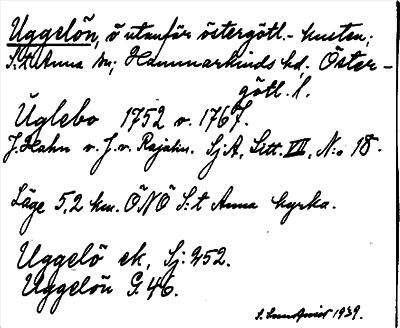 Uggelön, ö utanför östergötl.-kusten;
S:t Anna sn; Hammarkinds hd, Öster-
götl. l.
Üglebo 1752 o. 1767.
J. Hahn o. J. v. Rajalin. SjA, Litt. VII, N:o 18.
Läge 5,2 km. ÖNÖ S:t Anna kyrka.
Uggelö ek, Sj: 252.
Uggelön G. 46.
1939.